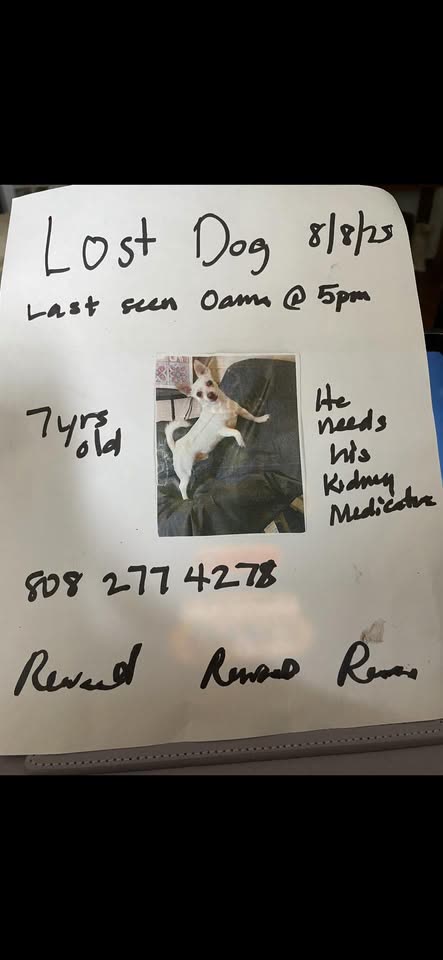 Lost Dog 8/8/25
Last seen Oama @ 5pm
7yrs
old
He
needs
his
Kidney
808 277 4278
Reward Reward